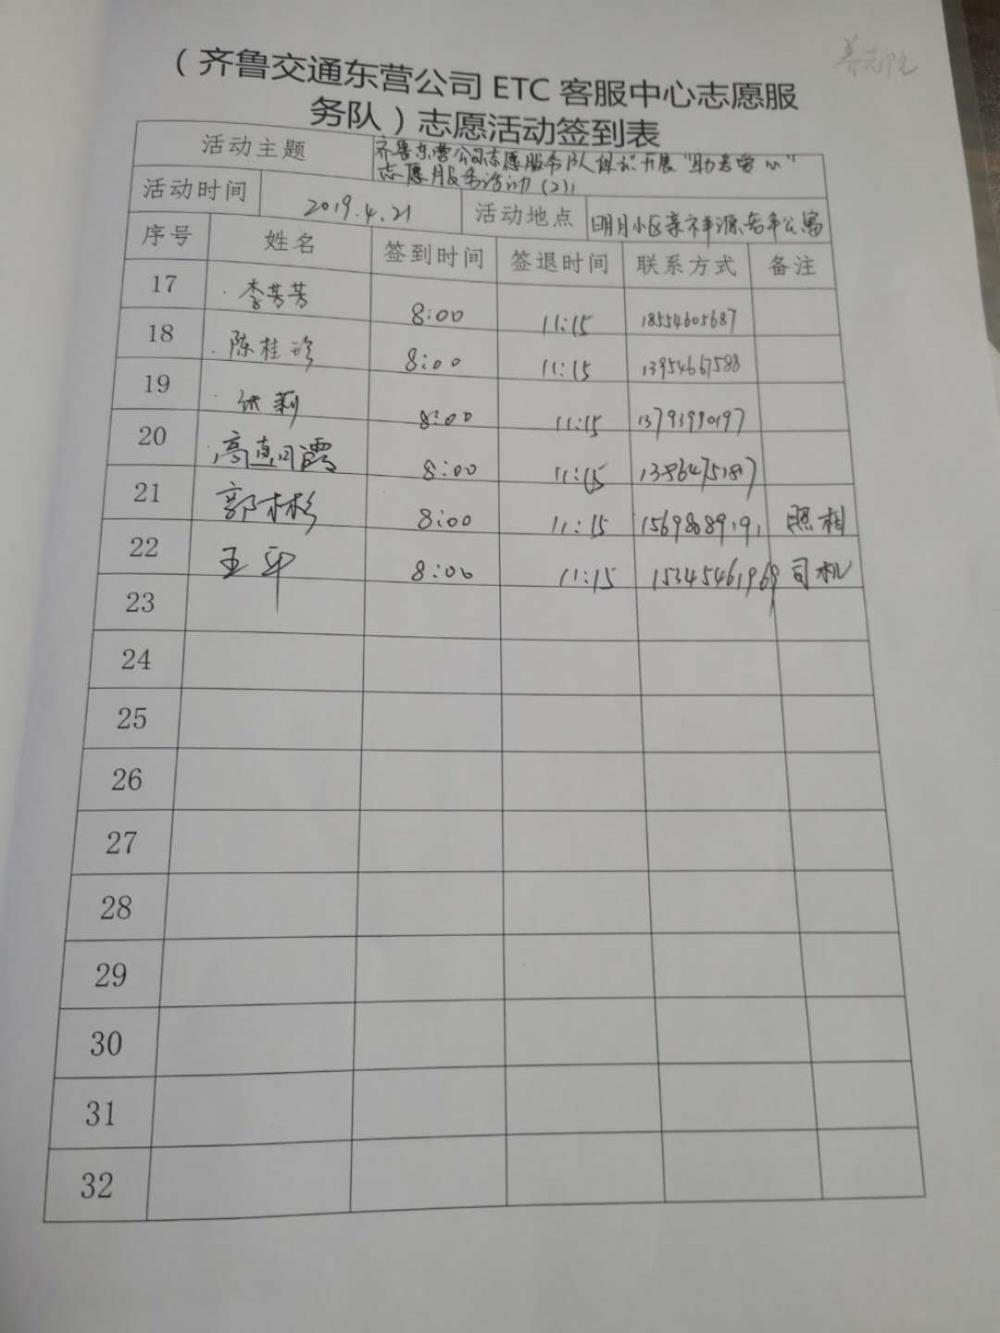 养老院
（齐鲁交通东营公司 ETC 客服中心志愿服
务队）志愿活动签到表
活动主题 齐鲁东营公司志愿服务队组织开展"助老爱心"
志愿服务活动(2)
活动时间 2019.4.21 活动地点 明月小区 老年公寓
序号 姓名 签到时间 签退时间 联系方式 备注
17 李芳芳 8:00 11:15 18554605687
18 陈桂珍 8:00 11:15 13954667588
19 张莉 8:00 11:15 13793990197
20 高 霞 8:00 11:15 13864751187
21 郭彬彬 8:00 11:15 15698889191 照相
22 王平 8:00 11:15 15345461969 司机
23
24
25
26
27
28
29
30
31
32